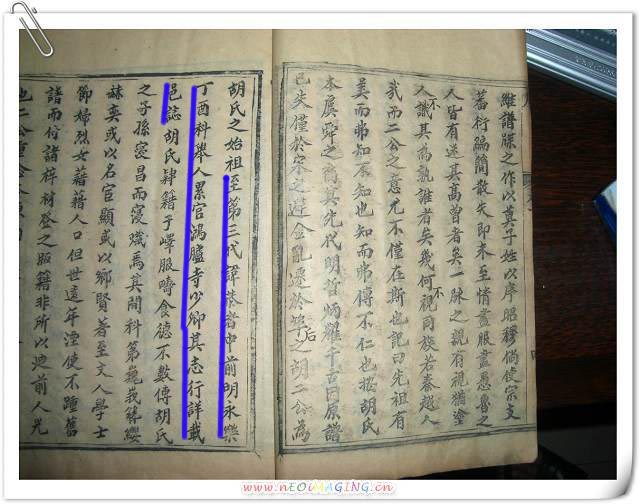 維譜牒之作以莫子姓以序昭穆倘使宗支
蕃衍編簡散失即未至情盡服盡愚魯之
人皆有迷其高曾者矣一脉之親有視猶塗
人議其為孰誰者矣幾何不視同族若秦越人
我而二公之意尤不僅在斯也記曰先祖有
美而弗知不明也知而弗傳不仁也
本虞舜之其先代明哲炳耀千古因原譜
已失僅於宋之避金亂遷於之後胡二公為
胡氏之始祖至第三代諱恭者中前明永樂
丁酉科舉人累官鴻臚寺少卿其志行詳載
邑誌胡氏肄籍于嶧服疇食德不數傳胡氏
之子孫寖昌而寖熾焉其間科第巍峩簪纓
奕或以名宦顯或以鄉賢著至文人學士
節婦烈女藉藉人口但世遠年湮使不踵舊
諸而付諸梓材登之版籍非所以迪前人光
也二公
www.nEOiMAGiNG.cn